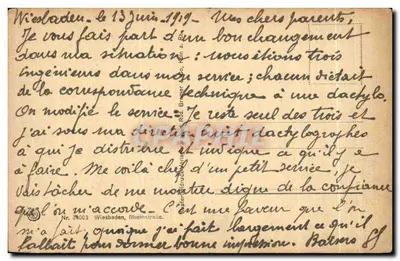 Wiesbaden - le 13 Juin - 1919 - Mes chers parents,
Je vous fais part d'un bon changement
dans ma situation : nous étions trois
ingénieurs dans mon service ; chacun dictait
de la correspondance technique à une dactylo.
On modifie le service. Je reste seul des trois et
j'ai sous ma direction dactylographes
à qui je distribue et indique ce qu'il y a
à faire. Me voilà chef d'un petit service. Je
vais tâcher de me montrer digne de la confiance
que l'on m'accorde. C'est une faveur que l'on
Nr. Wiesbaden, Rheinstraße.
m'a fait, quoique j'ai fait largement ce qu'il
fallait pour donner bonne impression. Baisers